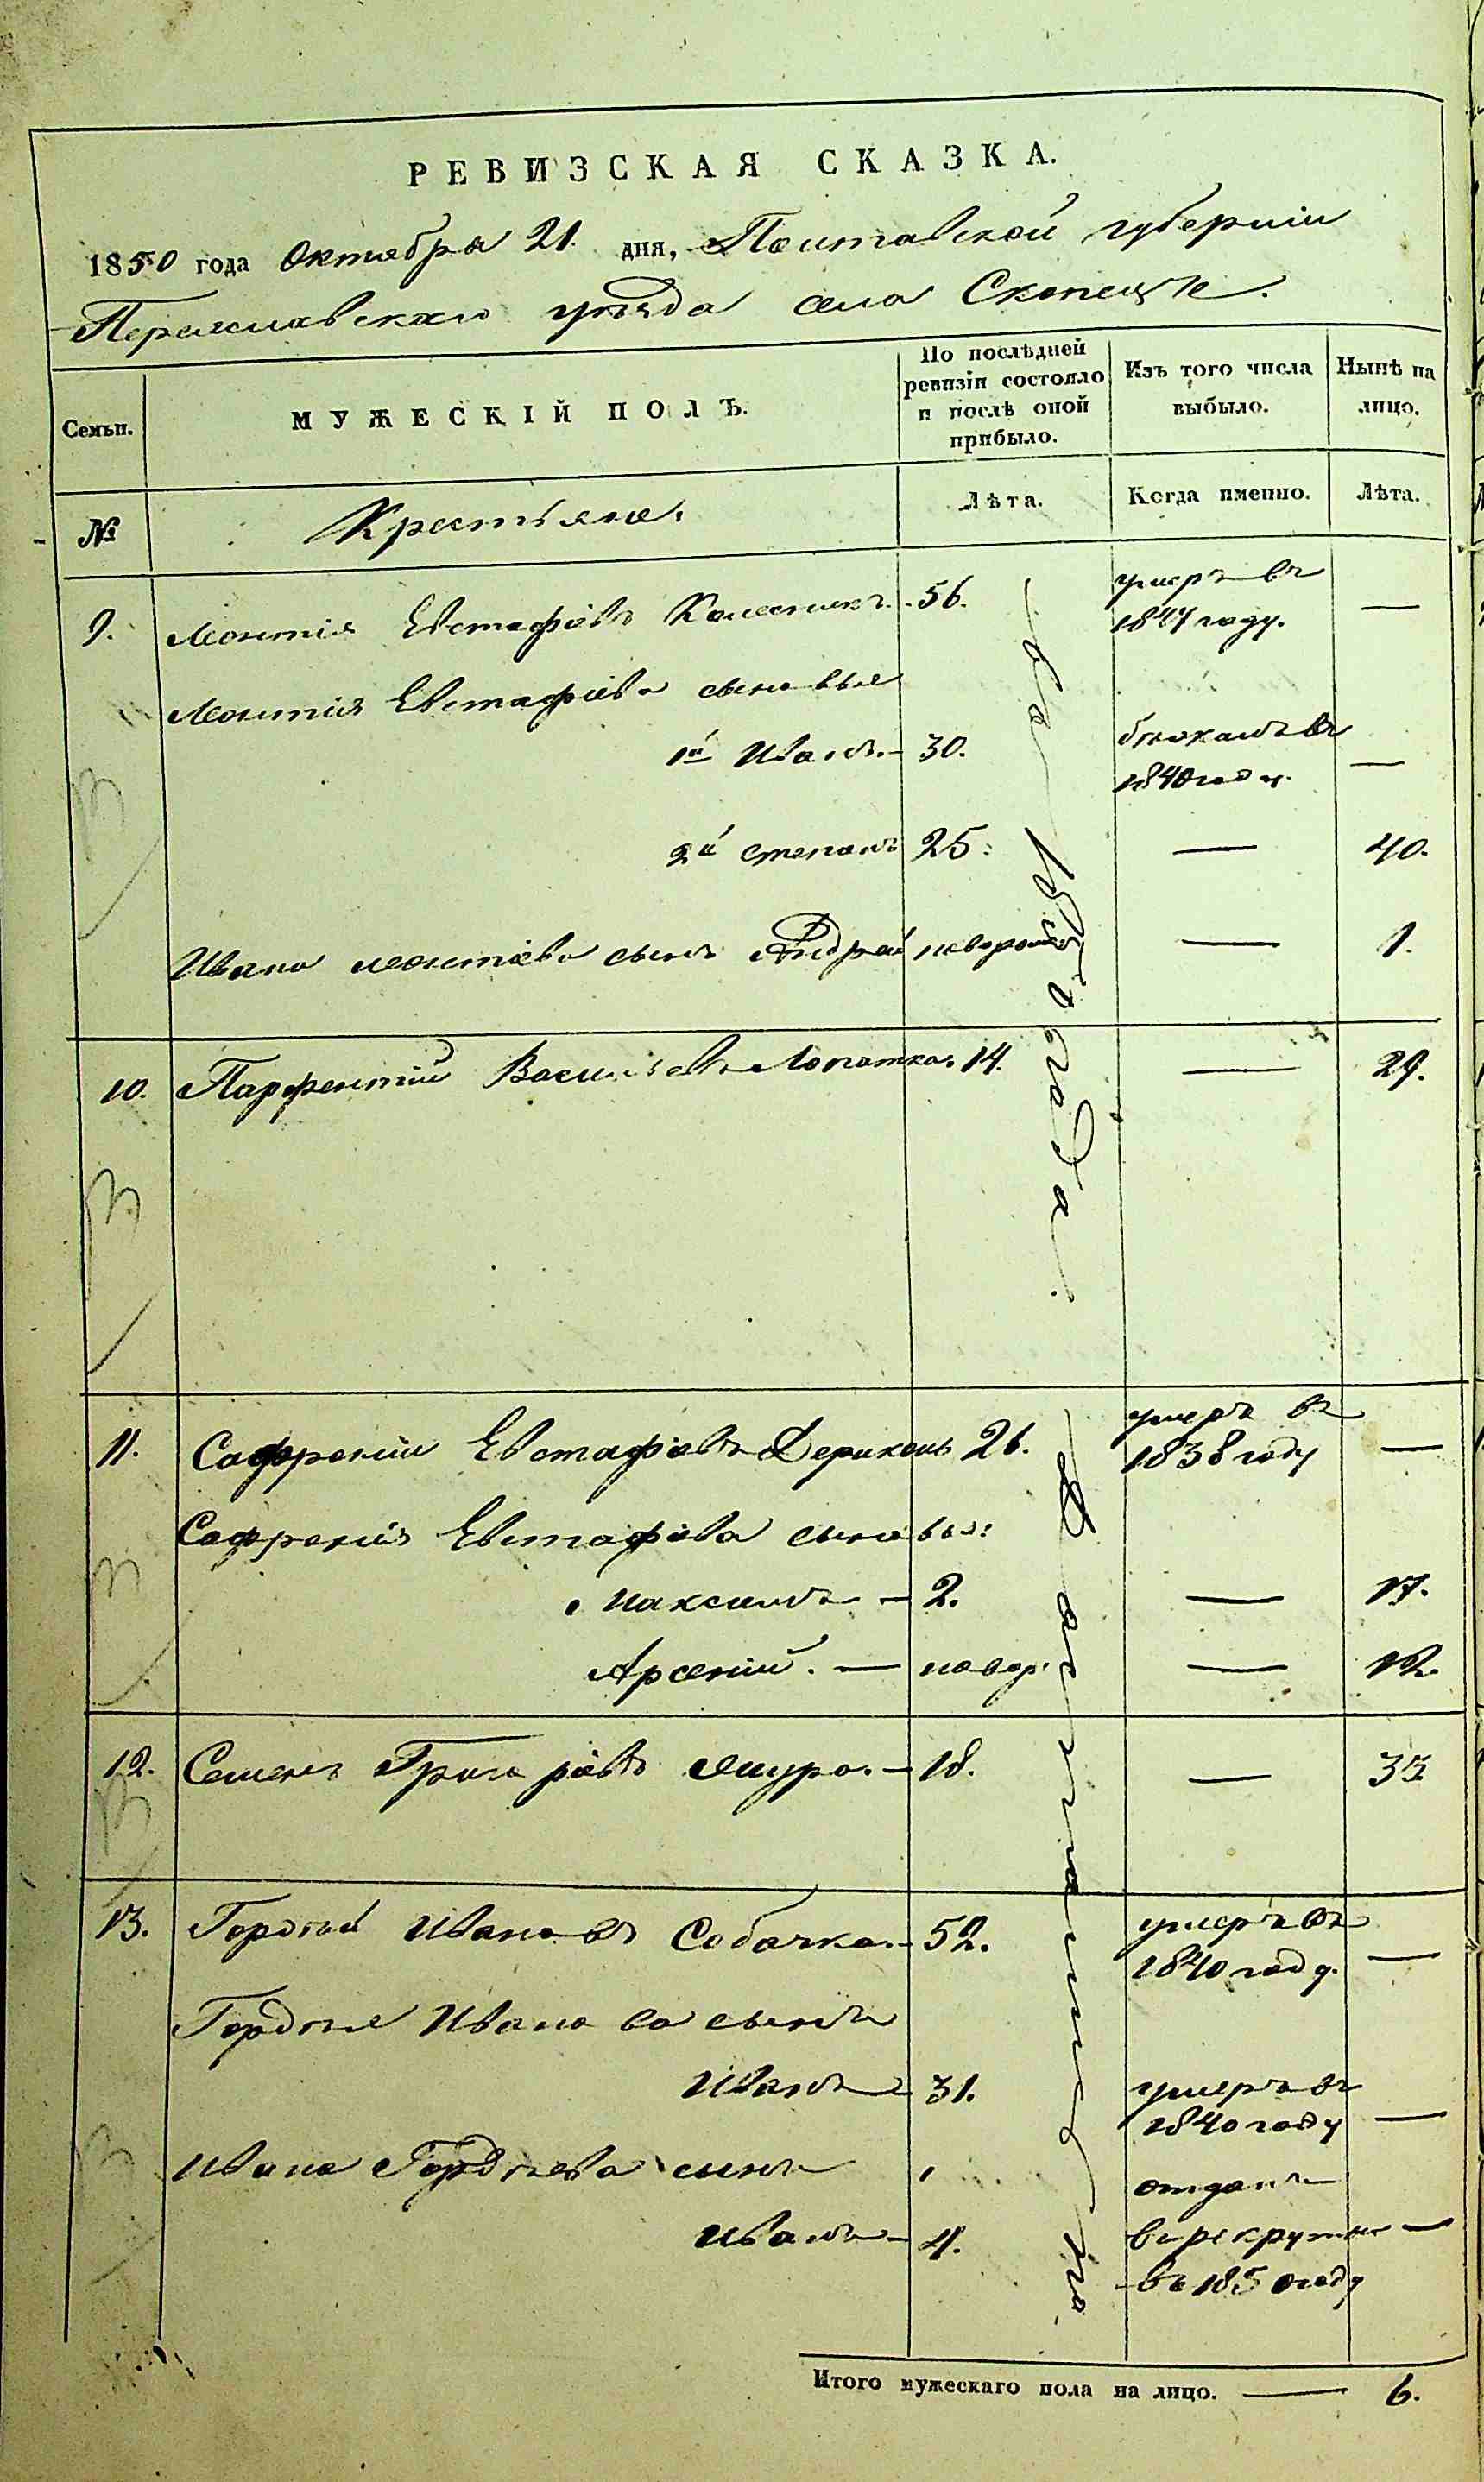 РЕВИЗСКАЯ СКАЗКА.
1850 года Октября 21. дня, Полтавской губерніи
Переяславскаго уѣзда села Скопецъ.
Семьи.
МУЖЕСКІЙ ПОЛЪ.
По послѣдней ревизіи состояло и послѣ оной прибыло.
Изъ того числа выбыло.
Нынѣ на лицо.
№
Крестьяне.
Лѣта.
Когда именно.
Лѣта.
9. Леонтій Евстафіевъ Колесникъ. 56. умеръ въ 1847 году. —
Леонтія Евстафіева сыновья
1й Иванъ. — 30. бѣжалъ въ 1840 году. —
2й Степанъ 25. — 40.
Ивана Леонтіева сынъ Андрей новорож — 1.
10. Парфентій Васильевъ Лопатка. 14. — 29.
11. Софроній Евстафіевъ 26. умеръ въ 1838 году —
Софронія Евстафіева сыновья:
Максимъ — 2. — 17.
Арсеній. — новор. — 12.
12. Семенъ Григоріевъ — 18. — 33
13. Гордѣй Ивановъ Собачка. — 52. умеръ въ 1840 году. —
Гордѣя Иванова сынъ
Иванъ 31. умеръ въ 1840 году —
Ивана Гордѣева сынъ
Иванъ — 4. отданъ въ рекруты въ 1850 году —
1850 года
Итого мужескаго пола на лицо. — 6.